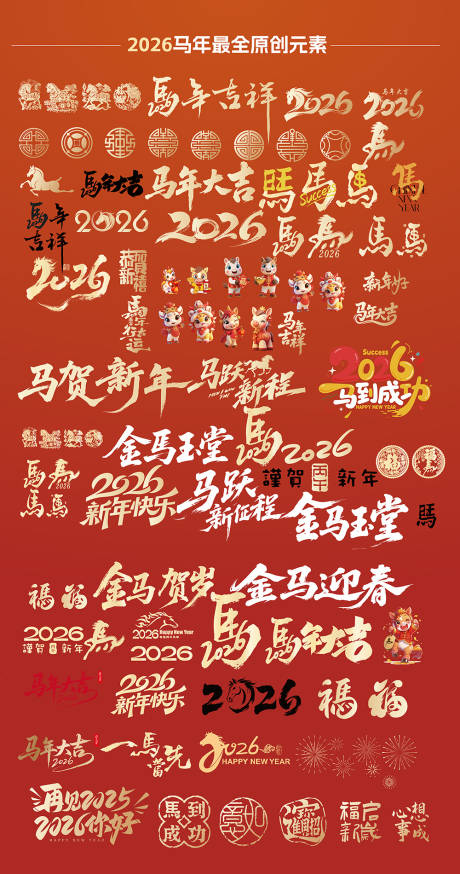 2026马年最全原创元素
馬年吉祥
2026
马年大吉
2026
馬
馬年大吉
马年大吉
馬
馬
Success
馬
馬
CHINESE
NEW
YEAR
馬年
吉祥
2026
2026
馬
馬
2026
馬
馬
2026
恭賀
新禧
新年好
马年大吉
馬年
行大运
马年
吉祥
马贺新年
马跃
新程
Success
2026
马到成功
HAPPY NEW YEAR
金馬玉堂
馬
2026
馬
馬
2026
馬
馬
2026
新年快乐
马跃
新征程
謹賀
丙午
新年
福
金马玉堂
馬
福
福
金马贺岁
金马迎春
2026
謹賀
新年
馬
2026 Happy New Year
2026
馬
2026
馬年大吉
马年大吉
2026
新年快乐
2026
福
福
马年大吉
2026
一馬當先
2026
HAPPY NEW YEAR
再见2025
2026你好
HAPPY NEW YEAR
馬到
成功
如意
招財進寶
福启
新歲
心想
事成